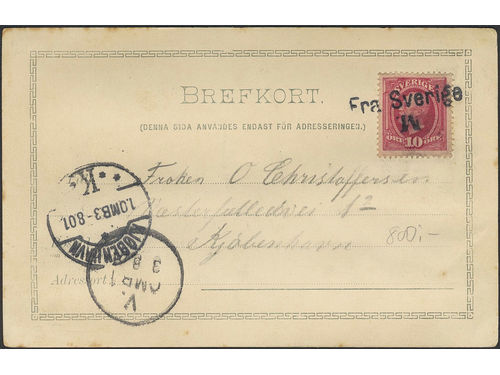 SVERIGE
Fra Sverige
M
ÖRE 10 ÖRE
BREFKORT.
(DENNA SIDA ANVÄNDES ENDAST FÖR ADRESSERINGEN.)
K.
1.OMB.3-8.01.
KJØBENHAVN
Frøken O Christoffersen
Vesterfælledvei 12
Kjøbenhavn
800,-
Adressort:
V.
OMB 1
3 8